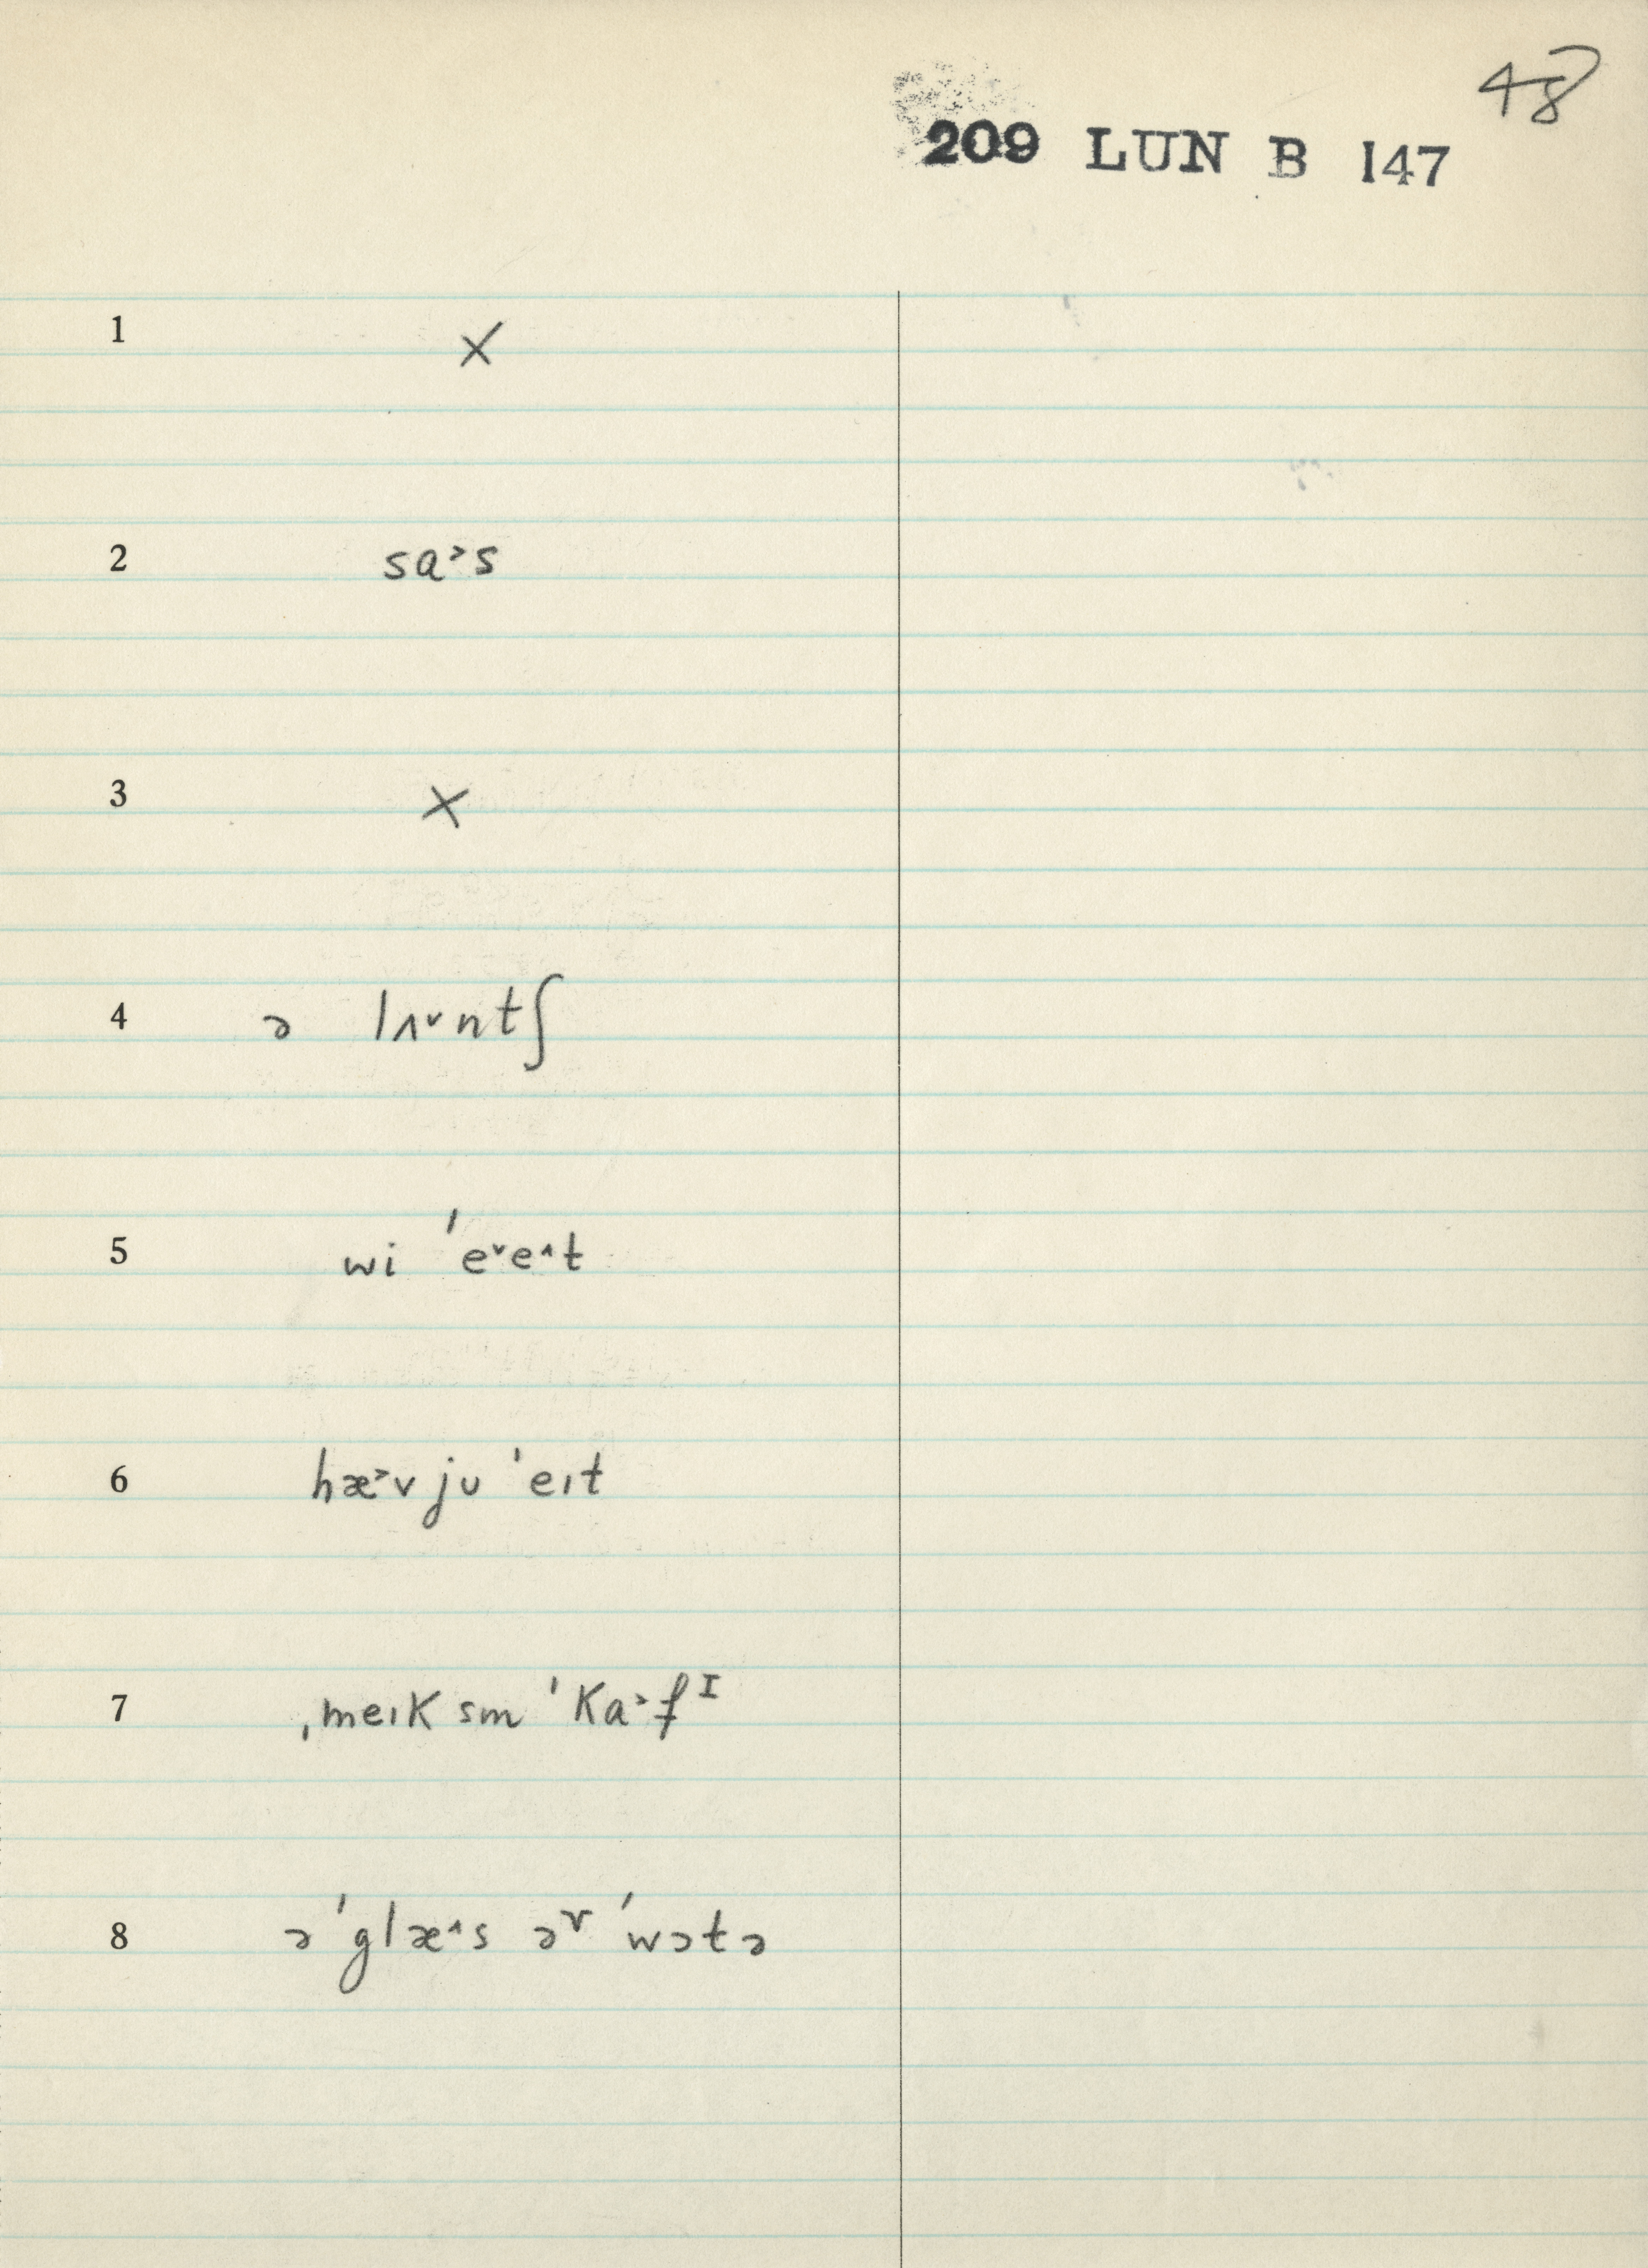 48
209 LUN B 147
1 ×
2 sa˃s
3 ×
4 ə lʌ˅ntʃ
5 wi ˈe˅e˄t
6 hæ˃v ju ˈeɪt
7 ˌmeɪk sm ˈka˃fᴵ
8 ə ˈglæ˄s əᵛ ˈwɔtə